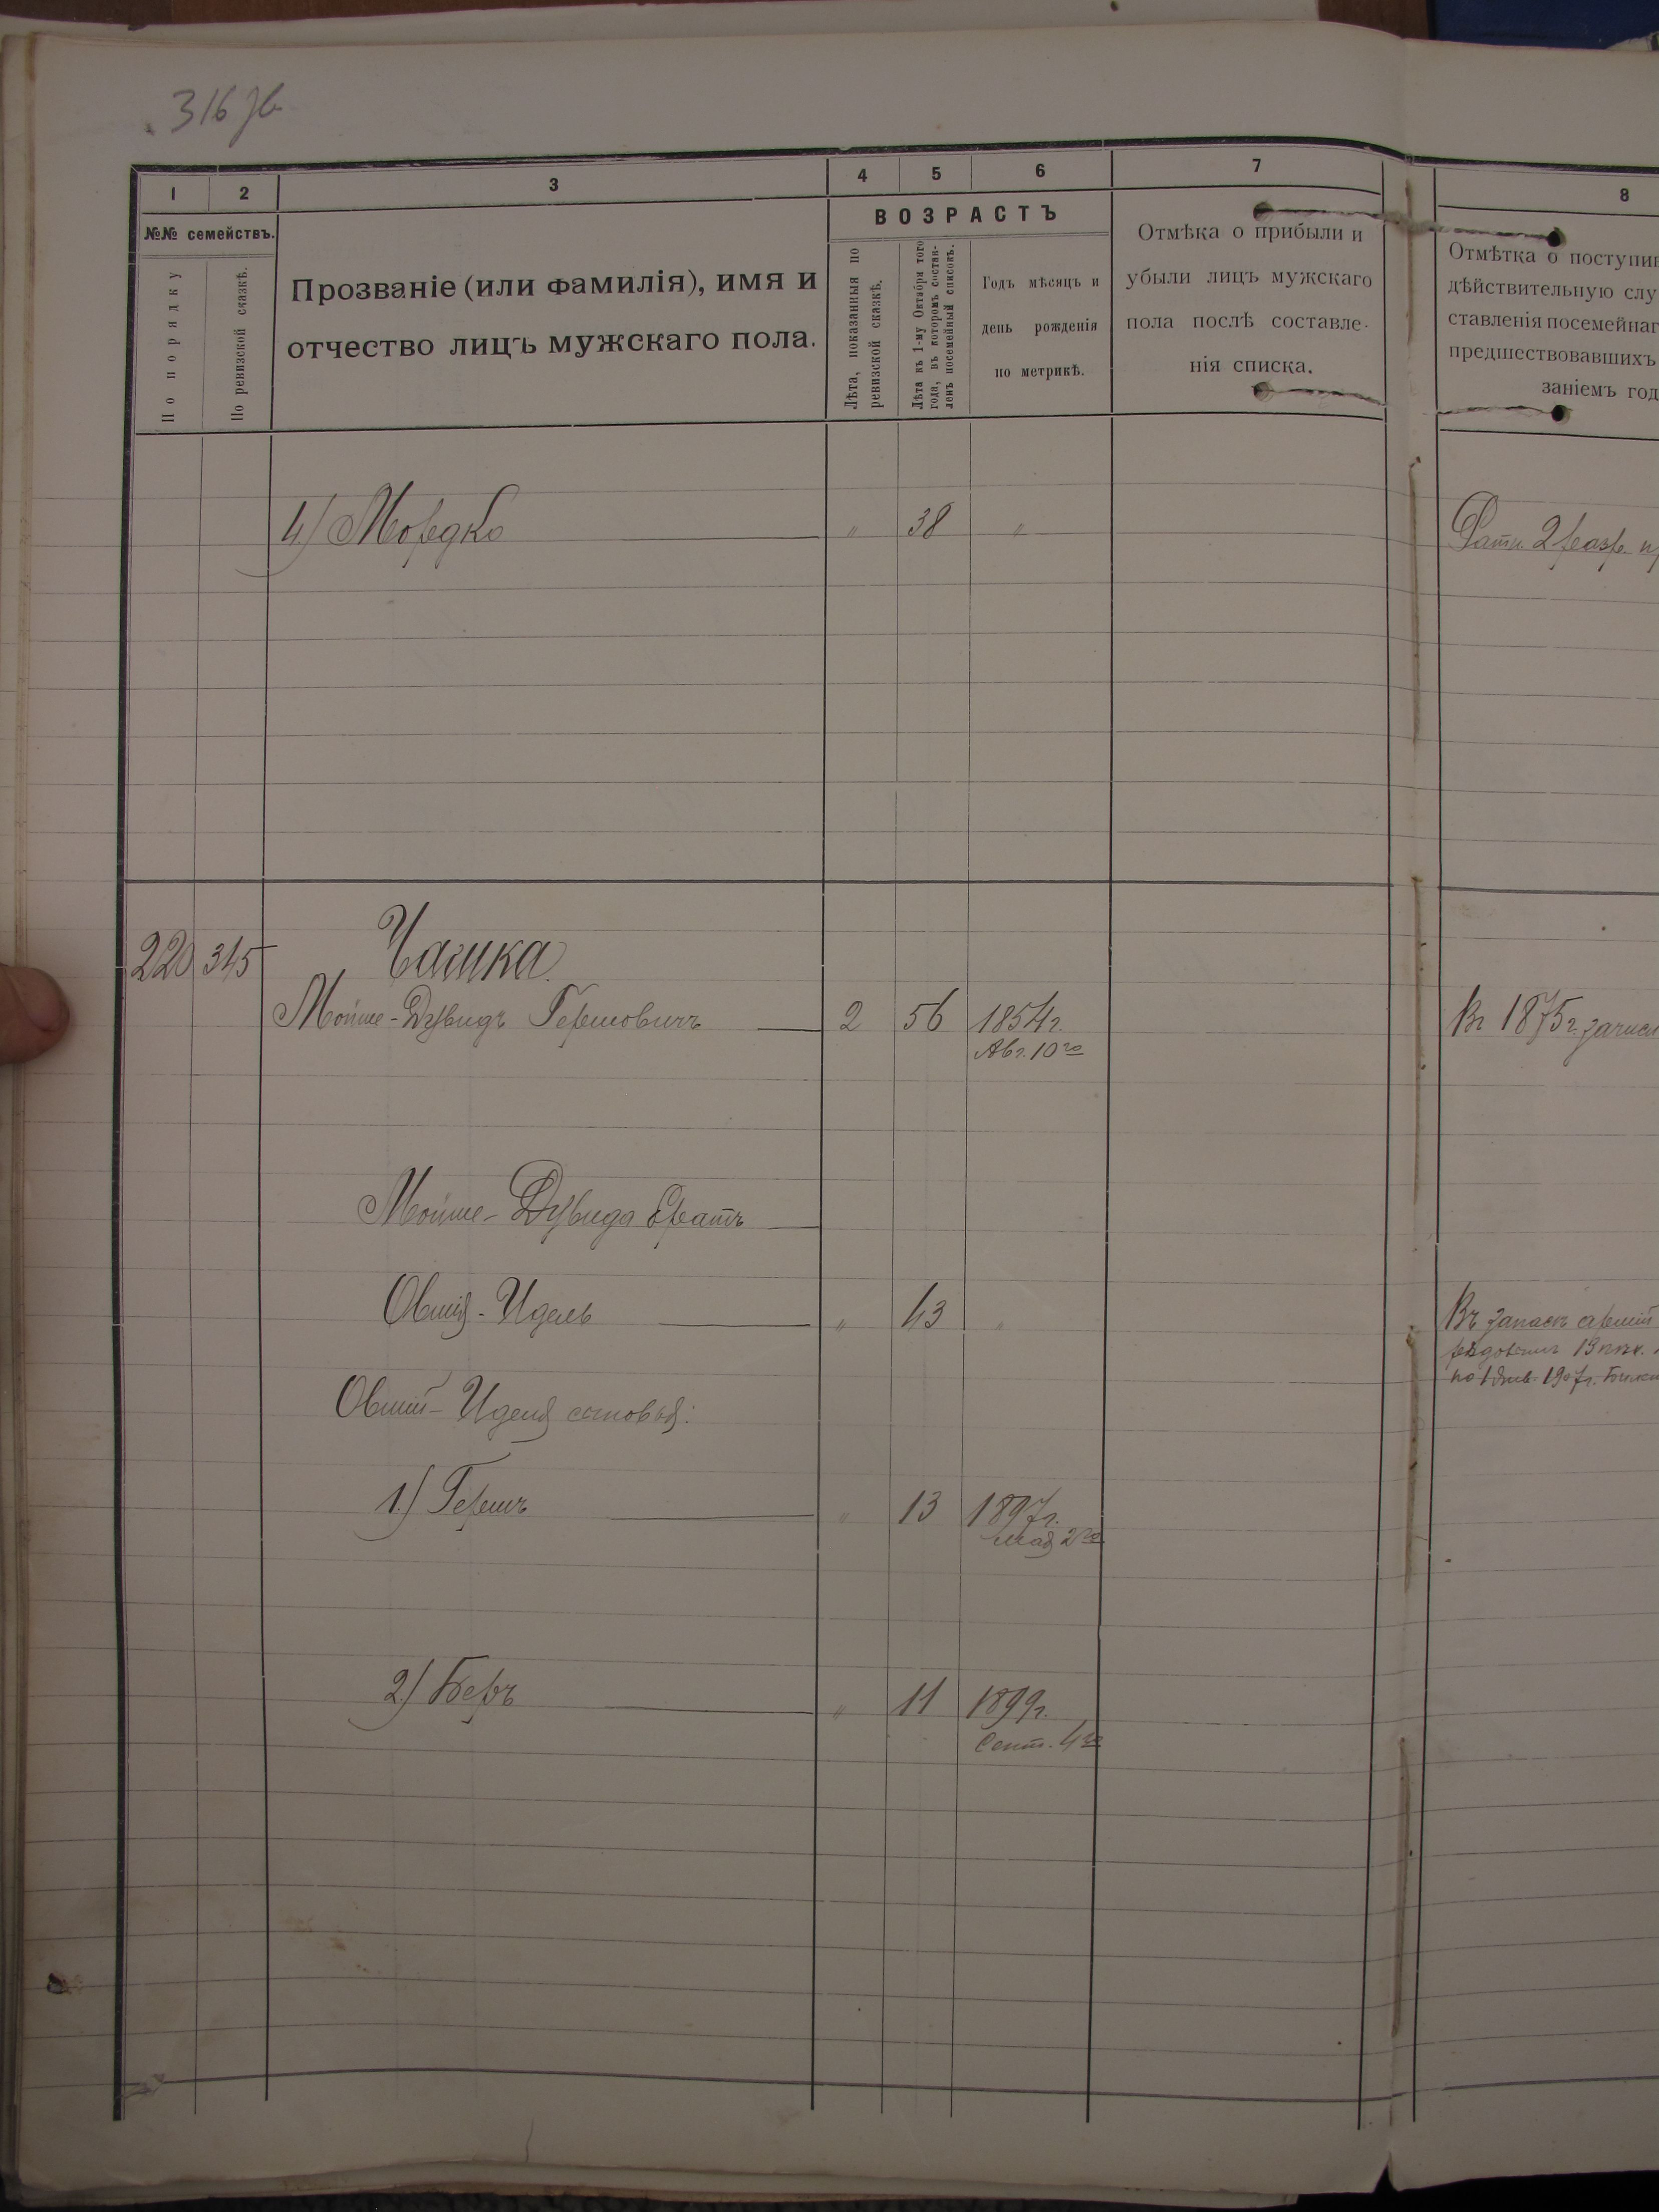 316 зв
1
2
3
4
5
6
7
8
№№ семействъ.
По порядку
По ревизской сказкѣ.
Прозваніе (или фамилія), имя и
отчество лицъ мужскаго пола.
ВОЗРАСТЪ
Лѣта, показанныя по
ревизской сказкѣ.
Лѣта къ 1-му Октября того
года, въ которомъ состав-
ленъ посемейный списокъ.
Годъ мѣсяцъ и
день рожденія
по метрикѣ.
Отмѣка о прибыли и
убыли лицъ мужскаго
пола послѣ составле-
нія списка.
Отмѣтка о поступив
дѣйствительную слу
ставленія посемейнаг
предшествовавшихъ
заніемъ год
4) Мордко " 38 "
Ратн. 2 разр.
220 345 Чашка
Мойше-Дувидъ Гершовичъ 2 56 1854 г.
Авг. 10го
Въ 1875 г. зачисл
Мойше-Дувида братъ
Овшія-Идель " 43 "
Въ запасъ армій
рядовымъ 19
по 1 Янв. 1907 г.
Овшія-Иделя сыновья:
1) Гершъ " 13 1897 г.
мая 2го
2) Беръ " 11 1899 г.
Сент. 4го